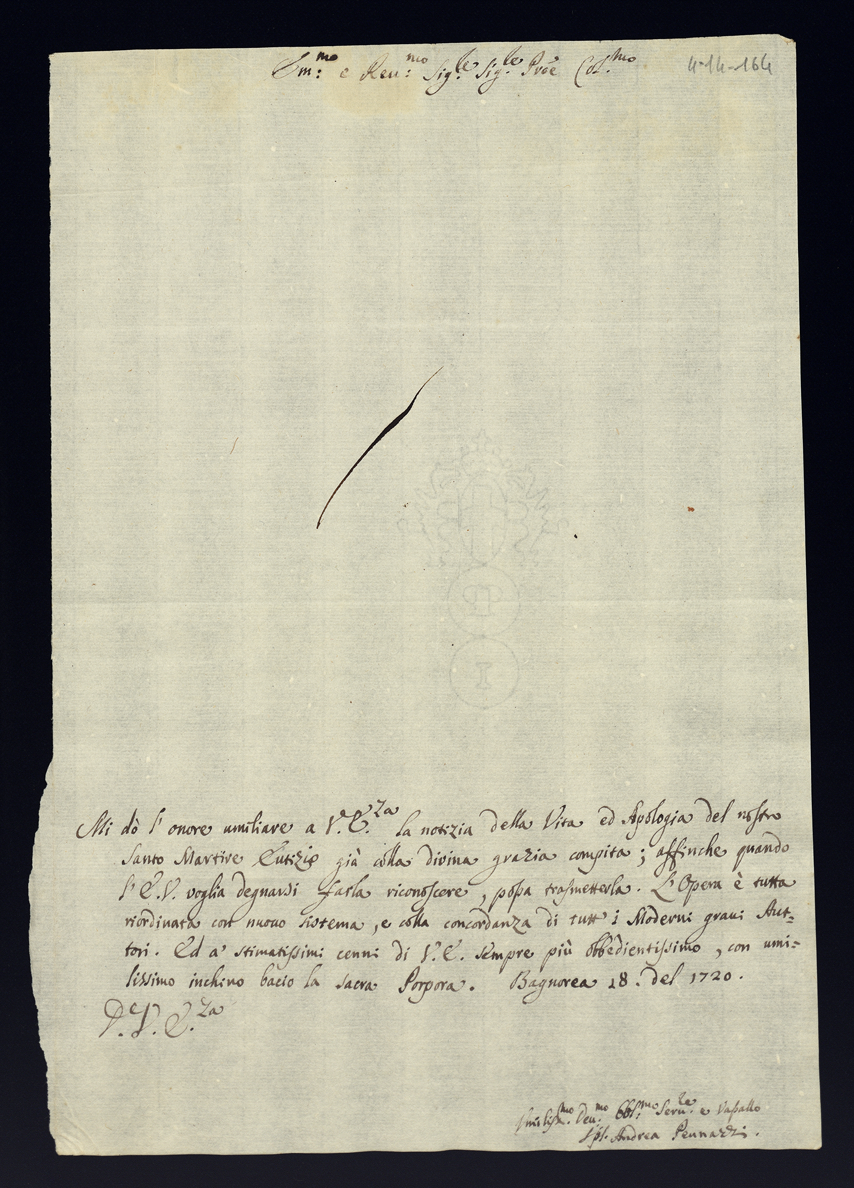 Em:mo e Reu:mo Sig.le Sig.le Prõe Col.mo
4-14-164
Mi dò l'onore umiliare a V.E.za la notizia della Vita ed Apologia del nostro
Santo Martire Eutizio già colla divina grazia compita; affinche quando
l'E.V. voglia degnarsi farla riconoscere, possa trasmetterla. L'Opera è tutta
riordinata con nuouo sistema, e colla concordanza di tutt'i Moderni graui Aut=
tori. Ed a' stimatissimi cenni di V.E. sempre più obbedientissimo, con umi=
lissimo inchino bacio la sacra Porpora. Bagnorea 18. del 1720.
D.V.E.za
Umiliss.mo Deu.mo Obl.mo Seru.le e Vassallo
Andrea Pennazzi.